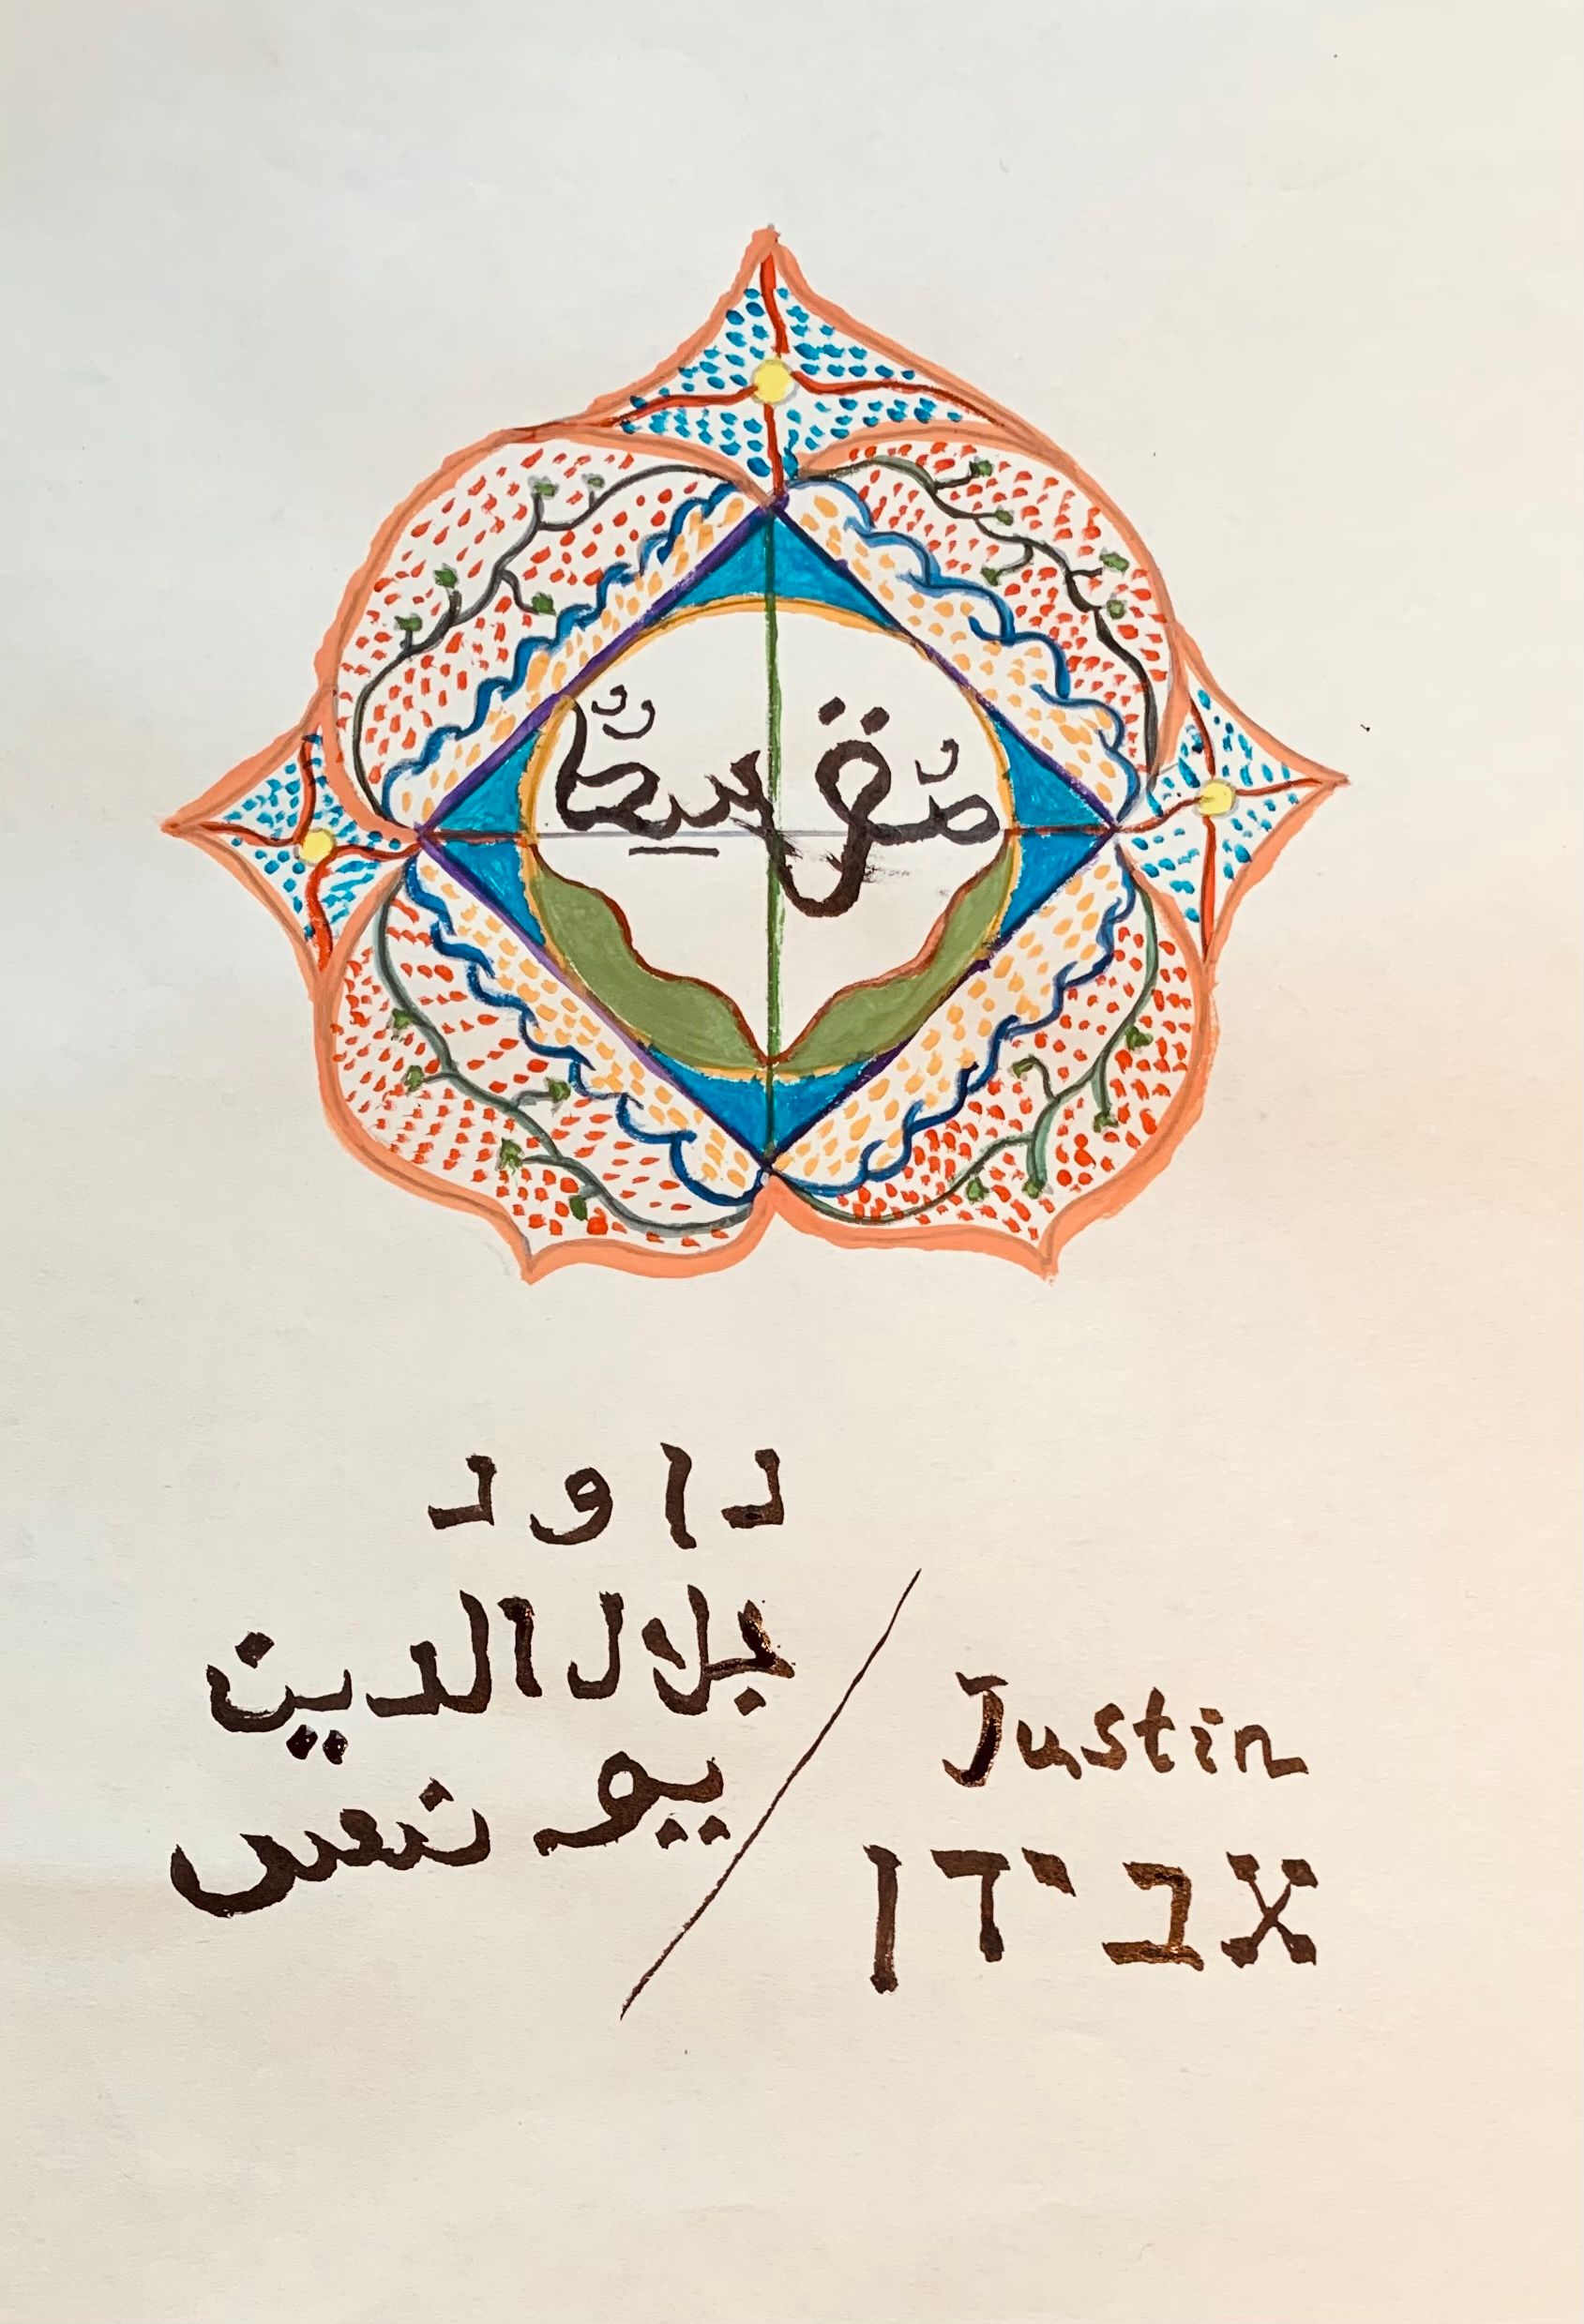 مُقسِطٌ
داود
بلال الدين
يونس
Justin
אבידן